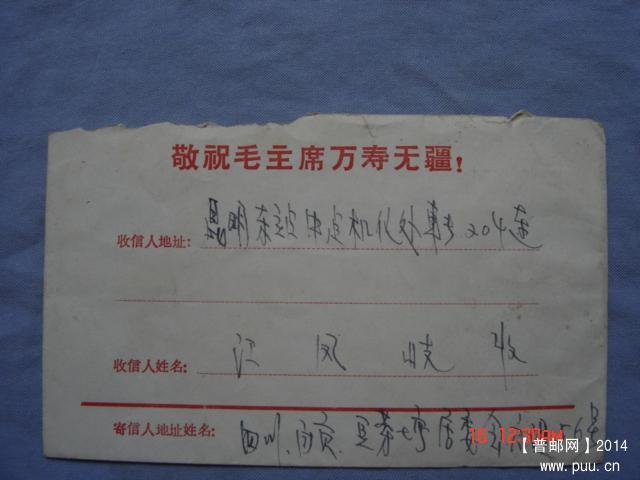 敬祝毛主席万寿无疆!
收信人地址: 昆明东 机化处 204连
收信人姓名: 江凤岐 收
寄信人地址姓名: 四川 县 居委会
16 12:30PM
【普邮网】2014
www.puu.cn